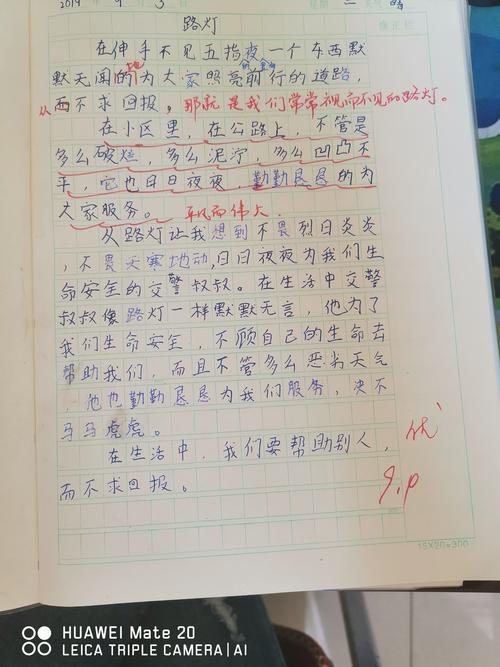 2019 9 3 星期 二 天气 晴
路灯 修正栏
在伸手不见五指夜一个东西默
默无闻的地为大家照亮前行的道路，
从而不求回报。那就是我们常常视而不见的路灯。
在小区里，在公路上，不管是
多么破烂，多么泥泞，多么凹凸不
平，它也日日夜夜，勤勤恳恳的为
大家服务。平凡而伟大.
从路灯让我想到不畏烈日炎炎
，不畏天寒地动，日日夜夜为我们生
命安全的交警叔叔。在生活中交警
叔叔像路灯一样默默无言，他为了
我们生命安全，不顾自己的生命去
帮助我们，而且不管多么恶劣天气
，他也勤勤恳恳为我们服务，决不
马马虎虎。
在生活中，我们要帮助别人，优
而不求回报。 9.10
15X20=300
HUAWEI Mate 20
LEICA TRIPLE CAMERA | AI